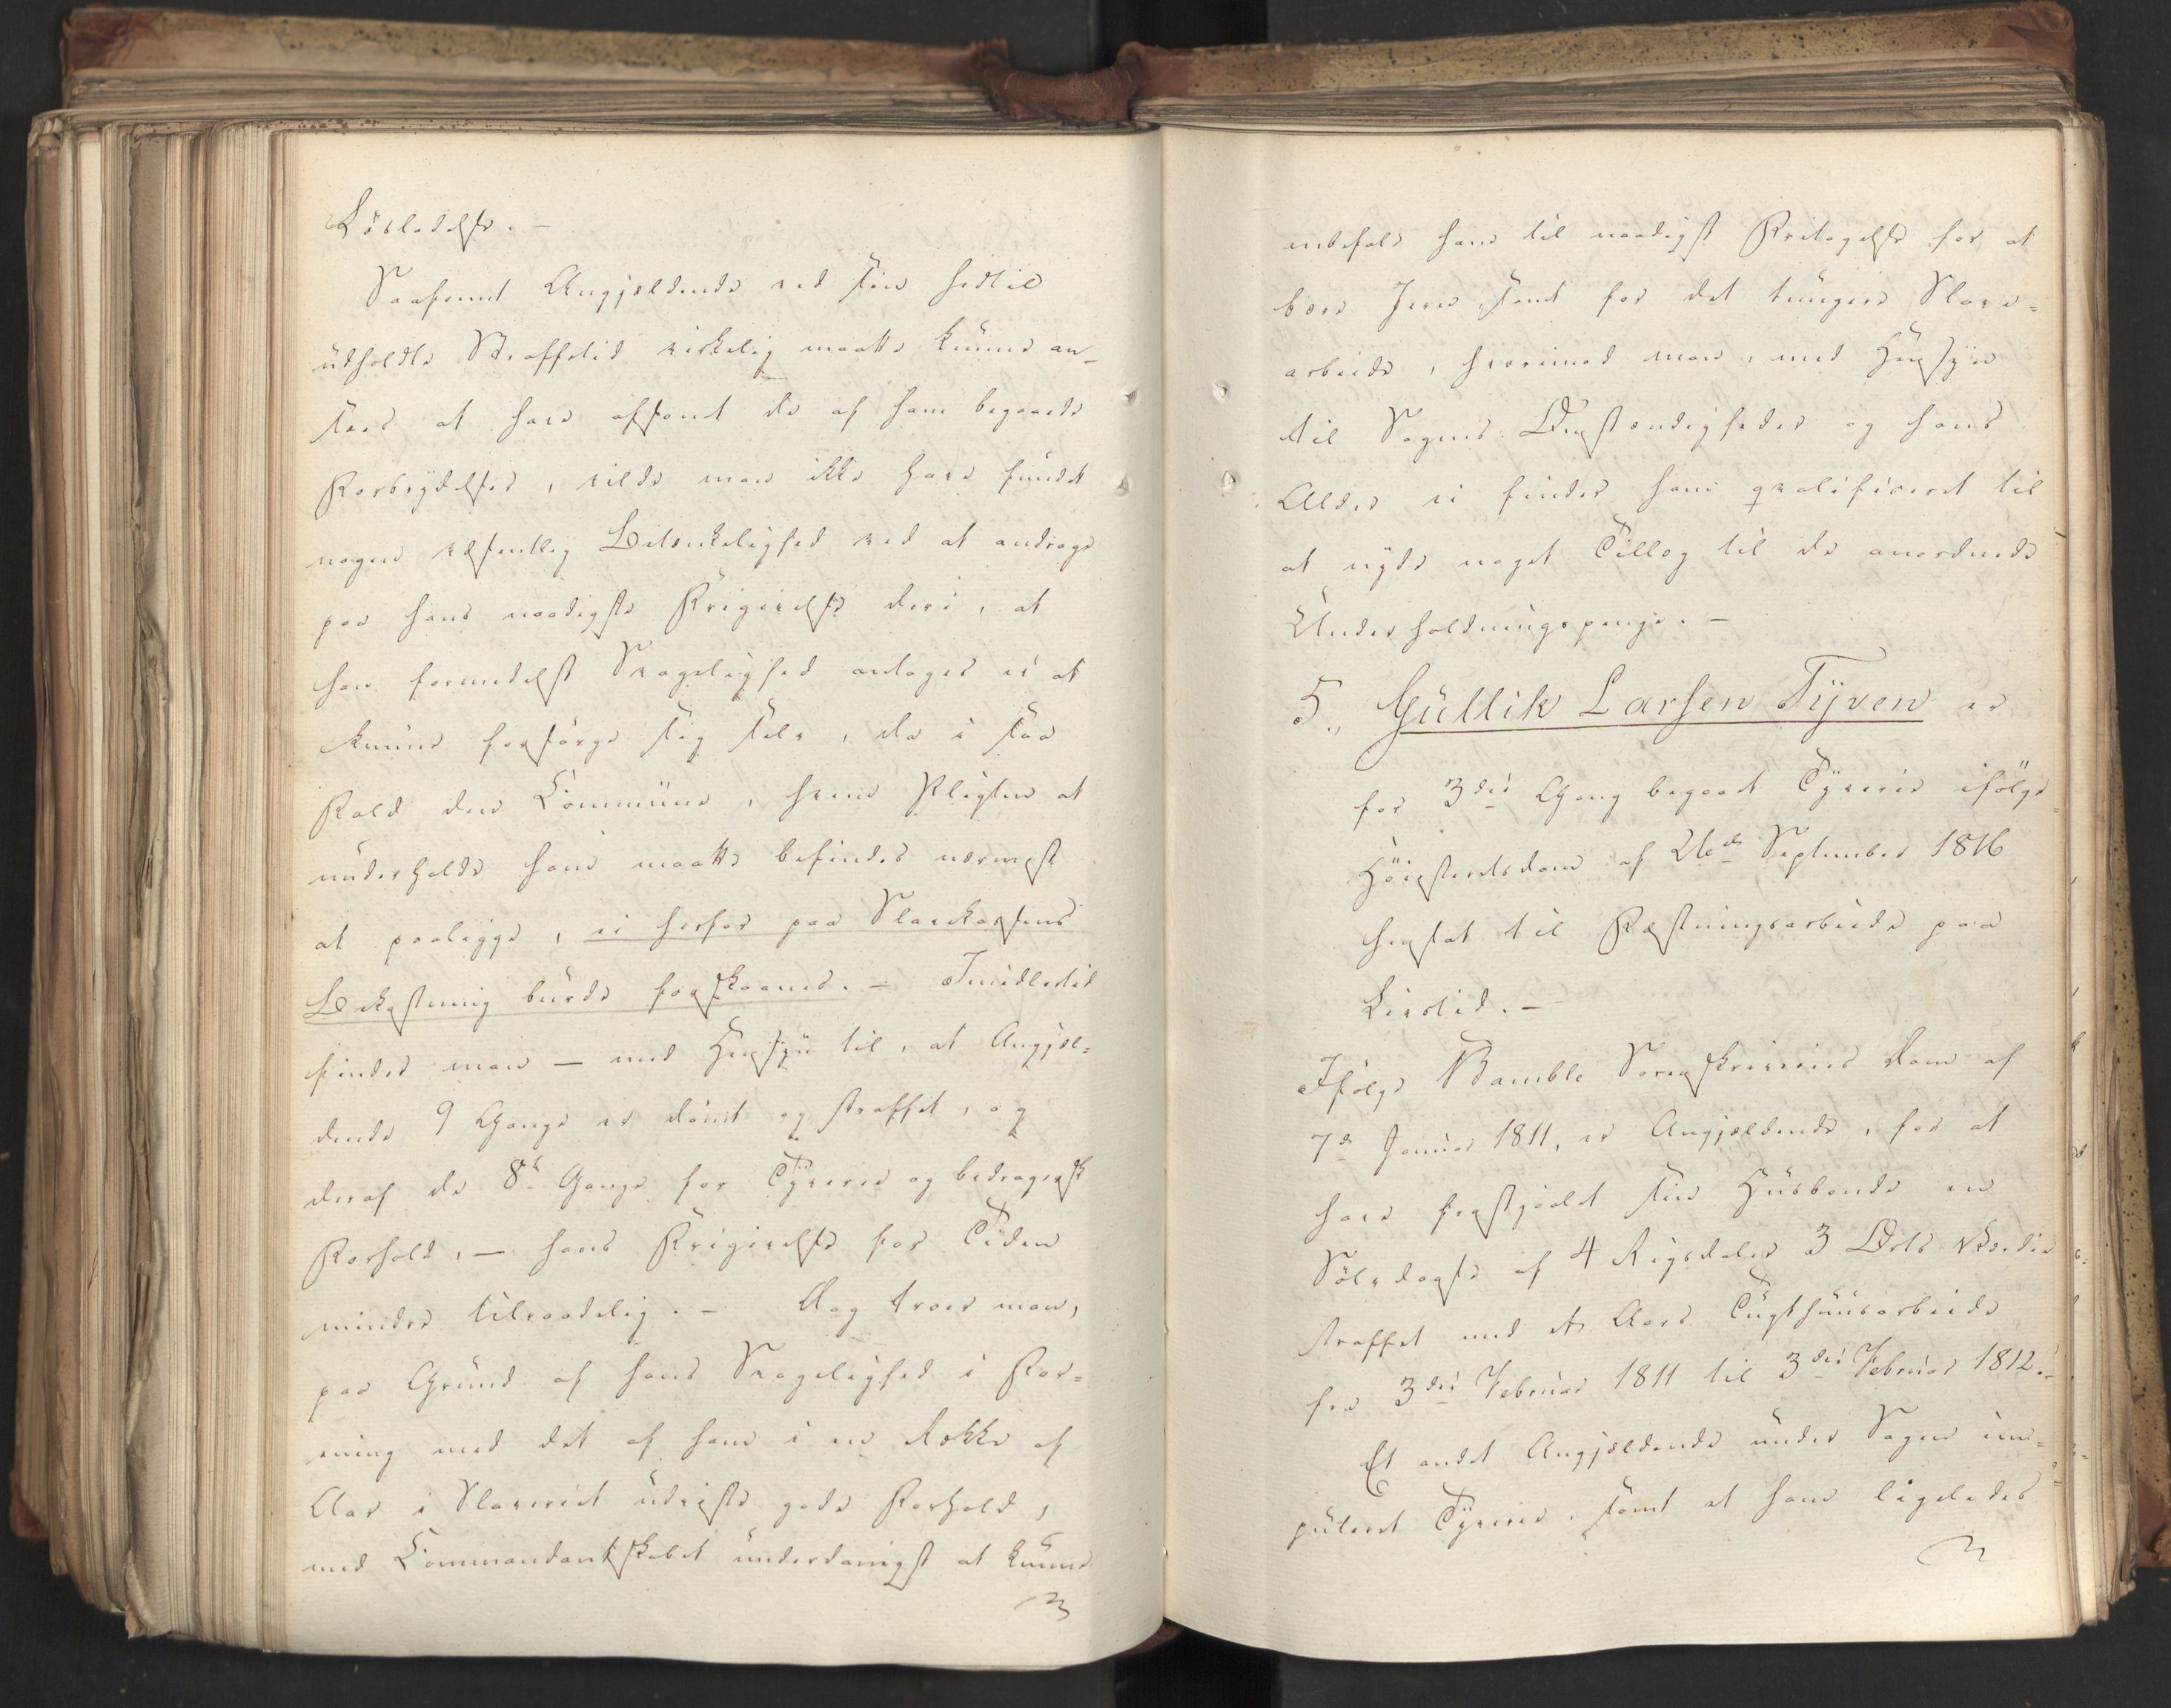 Løsladelse. –
Saafremt Angjeldende ved sin hidtil
udholdte Straffetid virkelig maatte kunne an-
sees at have afsonet de af ham begaaede
Forbrydelser, vilde man ikke have fundet
nogen væsentlig Betænkelighed ved at andrage
paa hans naadigste Frigivelse deri, at
han formedelst Svagelighed antages ei at
kunne forsørge sig selv, da i saa
Fald den Commune, hvem Pligten at
underholde ham maatte befindes nærmest
at paaligge, ei herfor paa Slavekassens
Bekostning burde forskaanes. – Imidlertid
finder man – med Hensyn til, at Angjel=
dende 9 Gange er dömt og straffet, og
deraf de 8te Gange for Tyverie og bedragersk
Forhold, – hans Frigivelse for Tiden
mindre tilraadelig. – Dog troer man,
paa Grund af hans Svagelighed i For=
ening med det af ham i en Række af
Aar i Slaveriet udviste gode Forhold,
med Commandantskabet underdanigst at kunne
anbefale ham til naadigst Fritagelse for at
bære Jern samt for det tungere Slave=
arbeide, hvorimod man, med Hensyn
til Sagens Omstændigheder og hans
Alder ei finder ham qvalificeret til
at nyde noget Tillæg til de anordnede
Underholdningspenge. –
5., Gullik Larsen Tyven er
for 3die Gang begaaet Tyverie ifølge
Höiesteretsdom af 26de September 1816
hensat til Fæstningsarbeide paa
Livstid. –
Ifølge Bamble Sorenskriveries Dom af
7de Januar 1811, er Angjeldende, for at
have frastjaalet sin Huusbonde en
Sölvdaase af 4 Rigsdaler 3 Orts Værdie
straffet med et Aars Tugthuusarbeide
fra 3die Februar 1811 til 3die Februar 1812. –
Et andet Angjeldende under Sagen im=
puteret Tyverie, samt at han ligeledes